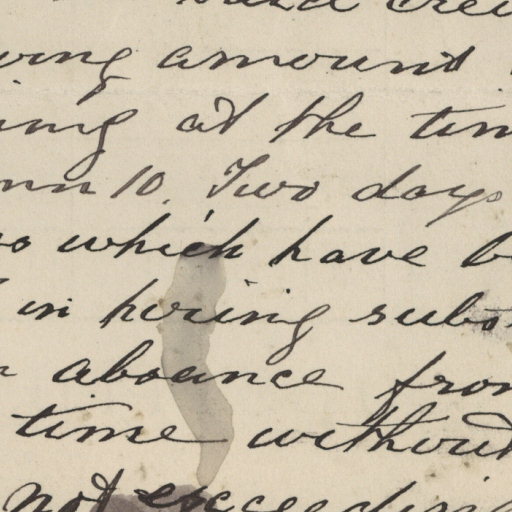 amount
at the tim
10. Two days
which have be
in hiring subs
absance from
time without
not exceeding